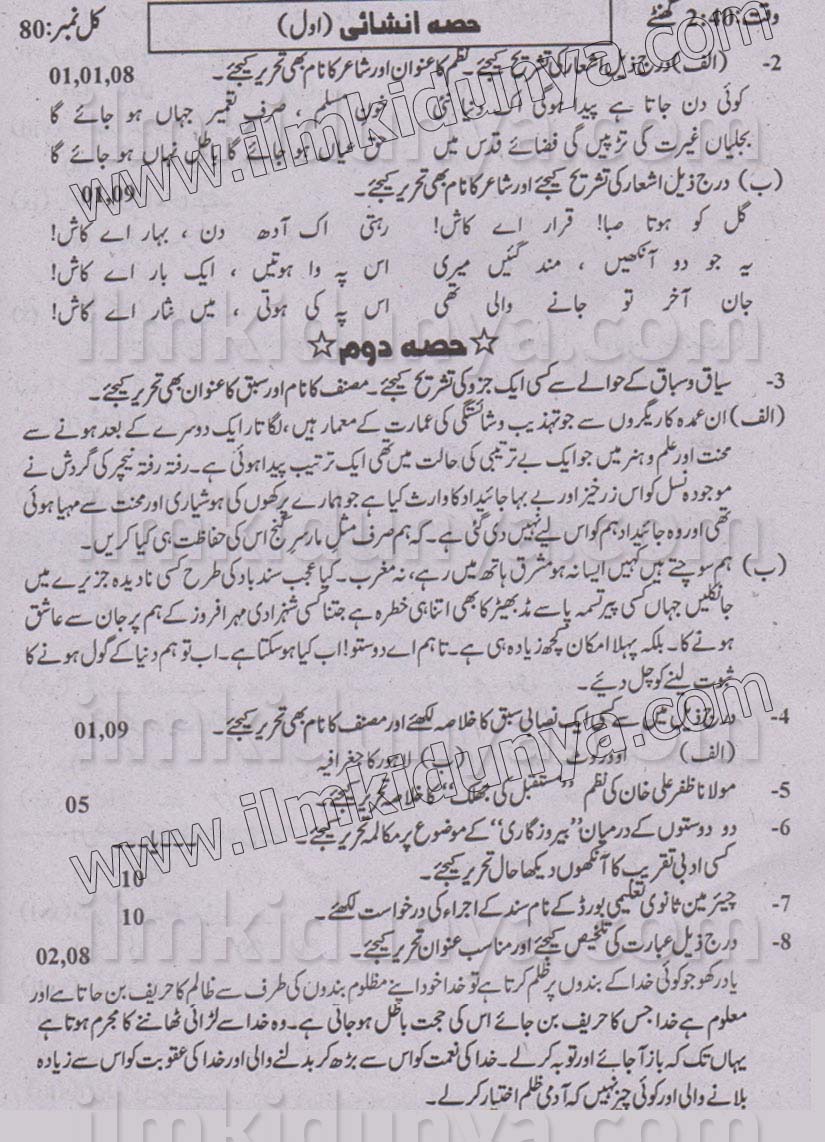 وقت: 2:40 گھنٹے حصہ انشائی (اول) کل نمبر: 80
2- (الف) درج ذیل اشعار کی تشریح کیجئے۔ نظم کا عنوان اور شاعر کا نام بھی تحریر کیجئے۔ 01,01,08
کوئی دن جاتا ہے پیدا ہوگی اک دنیا نئی خونِ مسلم ، صرفِ تعمیر جہاں ہو جائے گا
بجلیاں غیرت کی تڑپیں گی فضائے قدس میں حق عیاں ہو جائے گا باطل نہاں ہو جائے گا
(ب) درج ذیل اشعار کی تشریح کیجئے اور شاعر کا نام بھی تحریر کیجئے۔ 01,09
گل کو ہوتا صبا! قرار اے کاش! رہتی اک آدھ دن ، بہار اے کاش!
یہ جو دو آنکھیں ، مند گئیں میری اس پہ وا ہوتیں ، ایک بار اے کاش!
جان آخر تو جانے والی تھی اس پہ کی ہوتی ، میں نثار اے کاش!
☆حصہ دوم☆
3- سیاق و سباق کے حوالے سے کسی ایک جزو کی تشریح کیجئے۔ مصنف کا نام اور سبق کا عنوان بھی تحریر کیجئے۔
(الف) ان عمدہ کاریگروں سے جو تہذیب و شائستگی کی عمارت کے معمار ہیں، لگاتار ایک دوسرے کے بعد ہونے سے
محنت اور علم و ہنر میں جو ایک بے ترتیبی کی حالت میں تھی ایک ترتیب پیدا ہوئی ہے۔ رفتہ رفتہ نیچر کی گردش نے
موجودہ نسل کو اس زرخیز اور بے بہا جائیداد کا وارث کیا ہے جو ہمارے پرکھوں کی ہوشیاری اور محنت سے مہیا ہوئی
تھی اور وہ جائیداد ہم کو اس لیے نہیں دی گئی ہے۔ کہ ہم صرف مثلِ مار سرِ گنج اس کی حفاظت ہی کیا کریں۔
(ب) ہم سوچتے ہیں کہیں ایسا نہ ہو مشرق ہاتھ میں رہے، نہ مغرب۔ کیا عجب سند باد کی طرح کسی نادیدہ جزیرے میں
جا نکلیں جہاں کسی پیر تسمہ پا سے مڈبھیڑ کا بھی اتنا ہی خطرہ ہے جتنا کسی شہزادی مہر افروز کے ہم پر جان سے عاشق
ہونے کا۔ بلکہ پہلا امکان کچھ زیادہ ہی ہے۔ تاہم اے دوستو! اب کیا ہو سکتا ہے۔ اب تو ہم دنیا کے گول ہونے کا
ثبوت لینے کو چل دیے۔
4- درج ذیل میں سے کسی ایک نصابی سبق کا خلاصہ لکھئے اور مصنف کا نام بھی تحریر کیجئے۔ 01,09
(الف) اوورکوٹ (ب) لاہور کا جغرافیہ
5- مولانا ظفر علی خان کی نظم "مستقبل کی جھلک" کا خلاصہ تحریر کیجئے۔ 05
6- دو دوستوں کے درمیان "بیروزگاری" کے موضوع پر مکالمہ تحریر کیجئے۔
کسی ادبی تقریب کا آنکھوں دیکھا حال تحریر کیجئے۔ 10
7- چیئرمین ثانوی تعلیمی بورڈ کے نام سند کے اجراء کی درخواست لکھئے۔ 10
8- درج ذیل عبارت کی تلخیص کیجئے اور مناسب عنوان تحریر کیجئے۔ 02,08
یاد رکھو جو کوئی خدا کے بندوں پر ظلم کرتا ہے تو خدا خود اپنے مظلوم بندوں کی طرف سے ظالم کا حریف بن جاتا ہے اور
معلوم ہے خدا جس کا حریف بن جائے اس کی حجت باطل ہو جاتی ہے۔ وہ خدا سے لڑائی ٹھاننے کا مجرم ہوتا ہے
یہاں تک کہ باز آ جائے اور توبہ کر لے۔ خدا کی نعمت کو اس سے بڑھ کر بدلنے والی اور خدا کی عقوبت کو اس سے زیادہ
بلانے والی اور کوئی چیز نہیں کہ آدمی ظلم اختیار کر لے۔
www.ilmkidunya.com
www.ilmkidunya.com